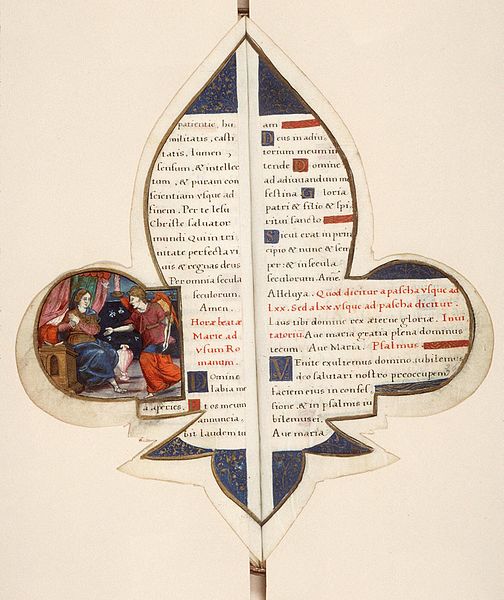 patientie, hu
militatis, casti
tatis. Lumen
sensum, & intellec
tum, & puram con
scientiam vsque ad
finem. Per te Iesu
Christe saluator
mundi Qui in tri
nitate perfecta vi
uis & regnas deus
Per omnia secula
seculorum.
Amen.
Horæ beatæ
Mariæ, ad
vsum Ro
manum.
Domine
labia me
a aperies. Et os meum
annunciа
bit laudem tu
am
Deus in adiu
torium meum in
tende Domine
ad adiuuandum me
festina. Gloria
patri & filio & spi
ritui sancto
Sicut erat in prin
cipio & nunc & sem
per: & in secula
seculorum. Ame
Alleluya. Quod dicitur a pascha vsque ad
lxx. Sed a lxx. vsque ad pascha dicitur.
Laus tibi domine rex æternæ gloriæ. Inui
tatoriu. Aue maria gratia plena dominus
tecum. Aue Maria. Psalmus
Venite exultemus domino, iubilemus
deo salutari nostro præoccupem
faciem eius in confes
sione, & in psalmis iu
bilemus ei.
Aue maria